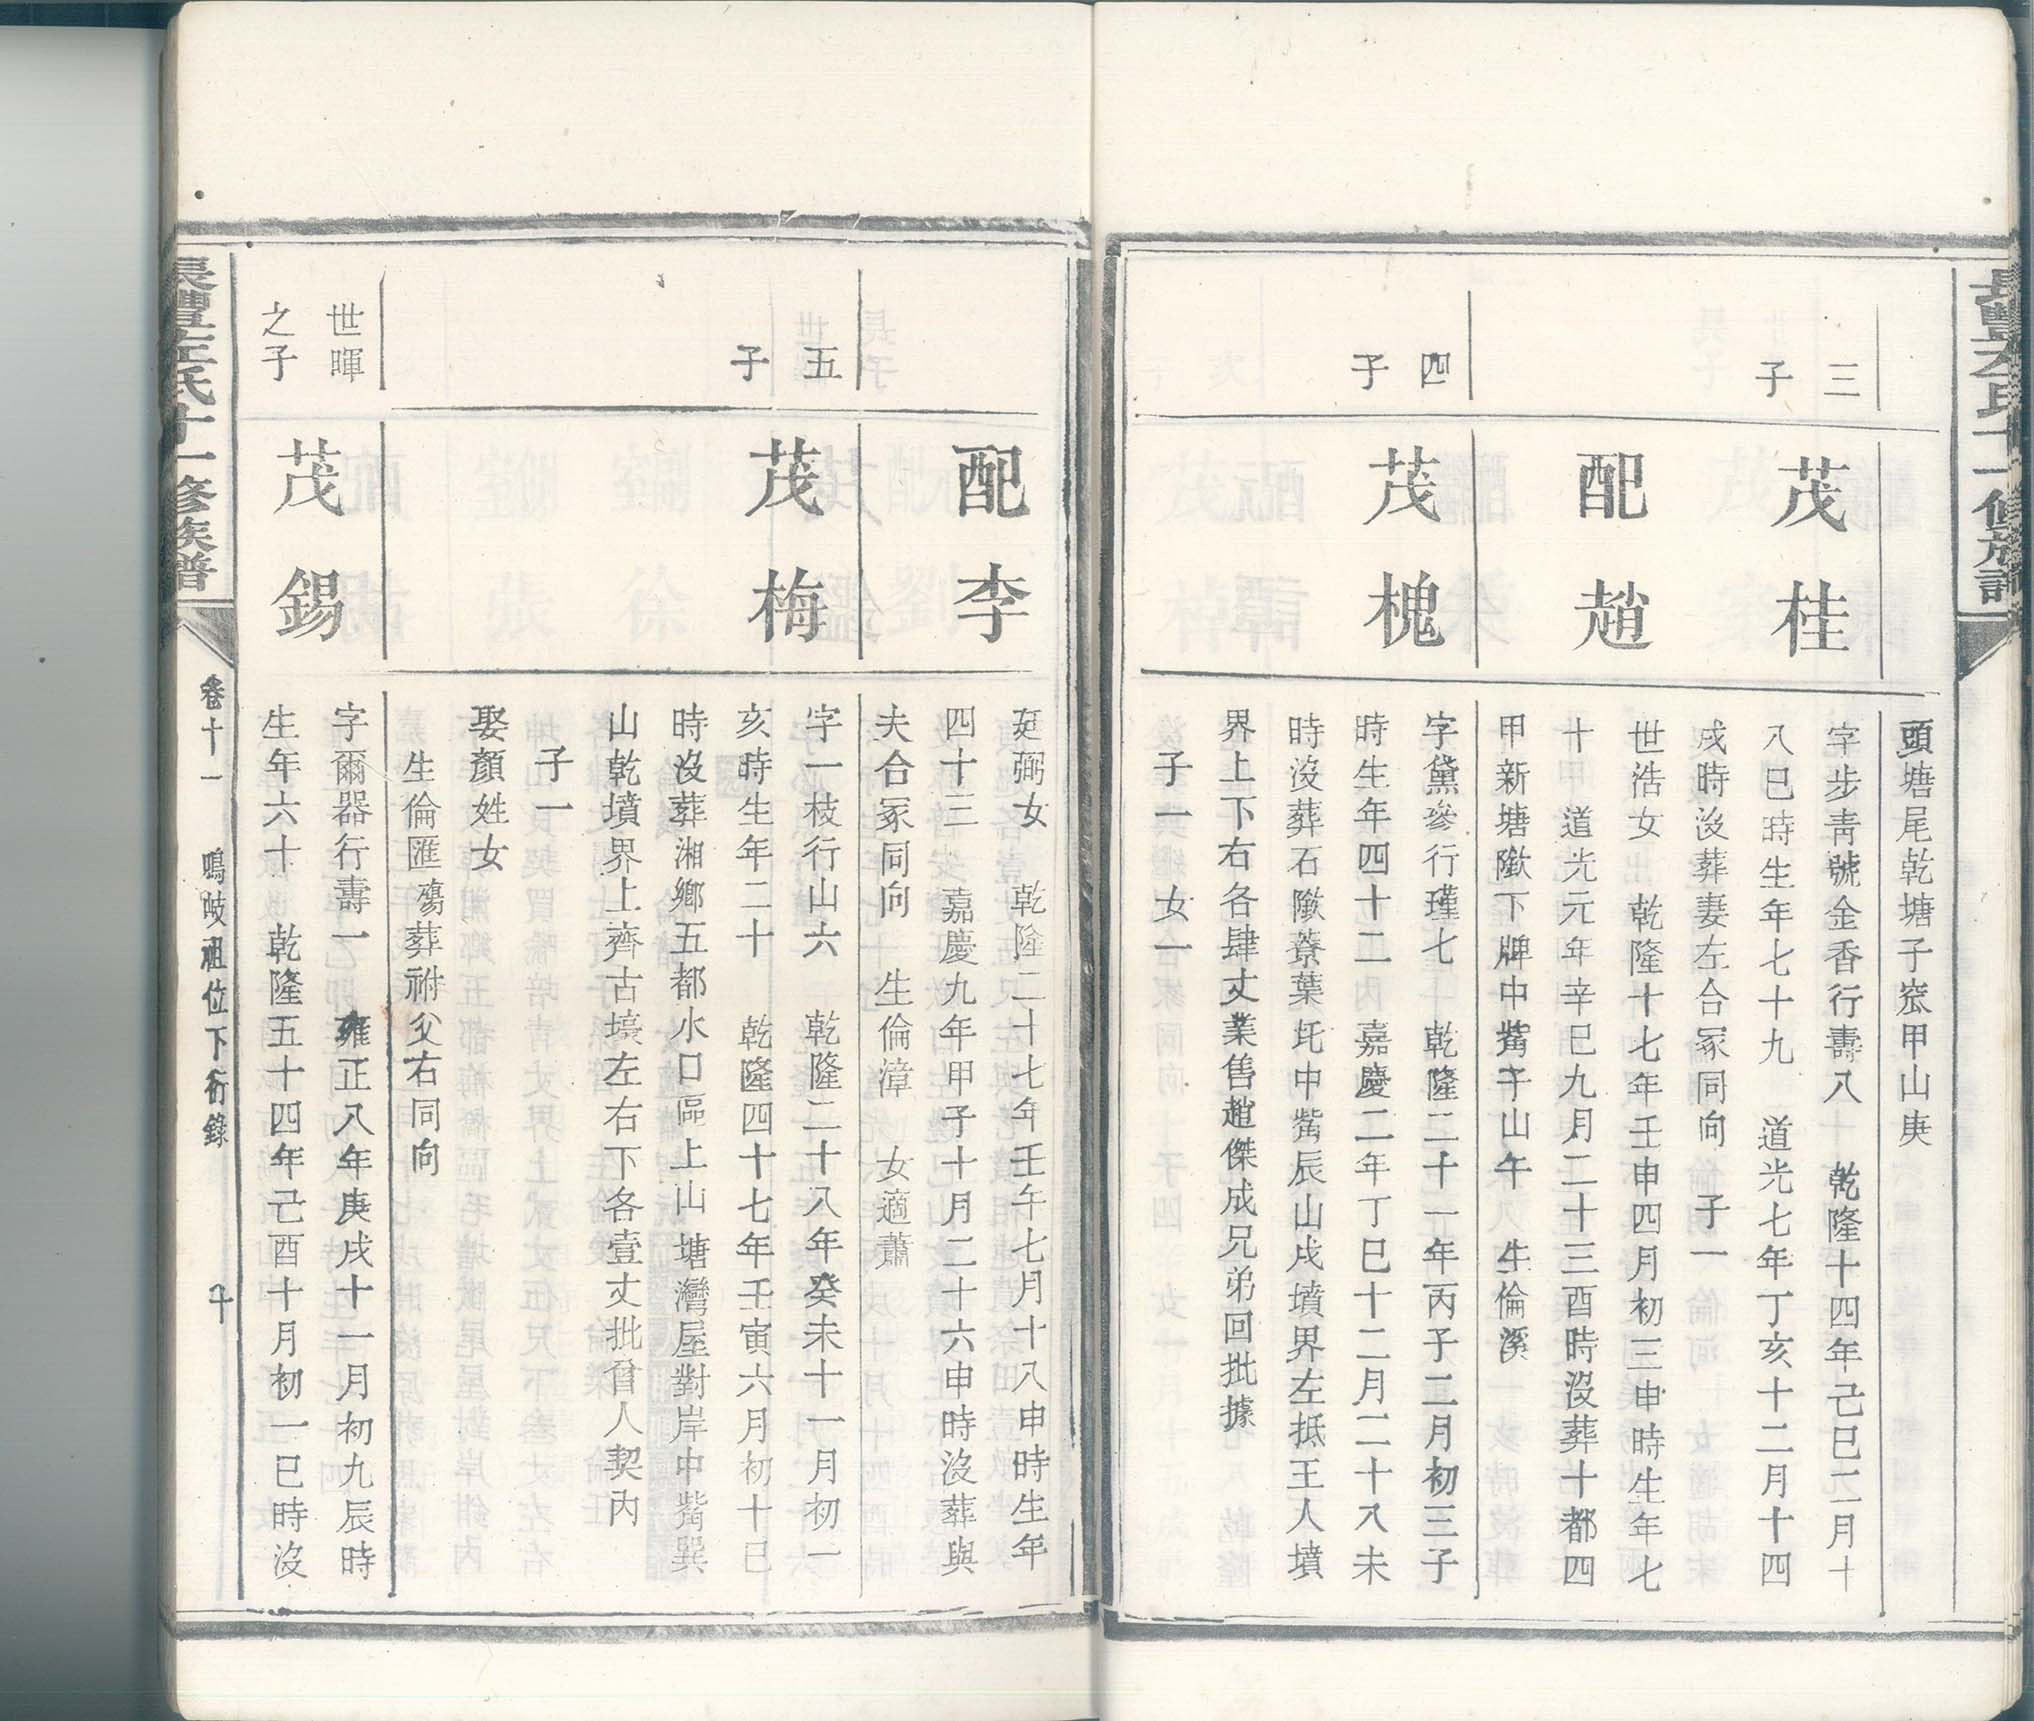 長豐左氏十一修族譜
頭塘尾乾塘子窊甲山庚
三
子
茂桂
字步青號金香行壽八 乾隆十四年己巳二月十
八巳時生年七十九 道光七年丁亥十二月十四
戌時沒葬妻左合冢同向 子一
配趙
世浩女 乾隆十七年壬申四月初三申時生年七
十 道光元年辛巳九月二十三酉時沒葬十都四
甲新塘隞下牌中觜子山午 生倫溪
四
子
茂槐
字黛參行瑾七 乾隆二十一年丙子二月初三子
時生年四十二 嘉慶二年丁巳十二月二十八未
時沒葬石隞蓑葉圫中觜辰山戌墳界左抵王人墳
界上下右各肆丈業售趙傑成兄弟回批據
子一 女一
配李
廷弼女 乾隆二十七年壬午七月十八申時生年
四十三 嘉慶九年甲子十月二十六申時沒葬與
夫合冢同向 生倫漳 女適蕭
五
子
茂梅
字一枝行山六 乾隆二十八年癸未十一月初一
亥時生年二十 乾隆四十七年壬寅六月初十巳
時沒葬湘鄉五都水口區上山塘灣屋對岸中觜巽
山乾墳界上齊古壕左右下各壹丈批脊人契內
子一
娶顏姓女
生倫匯殤葬祔父右同向
世暉
之子
茂錫
字爾器行壽一 雍正八年庚戌十一月初九辰時
生年六十 乾隆五十四年己酉十月初一巳時沒
長豐左氏十一修族譜
卷十一 鳴岐祖位下衍錄